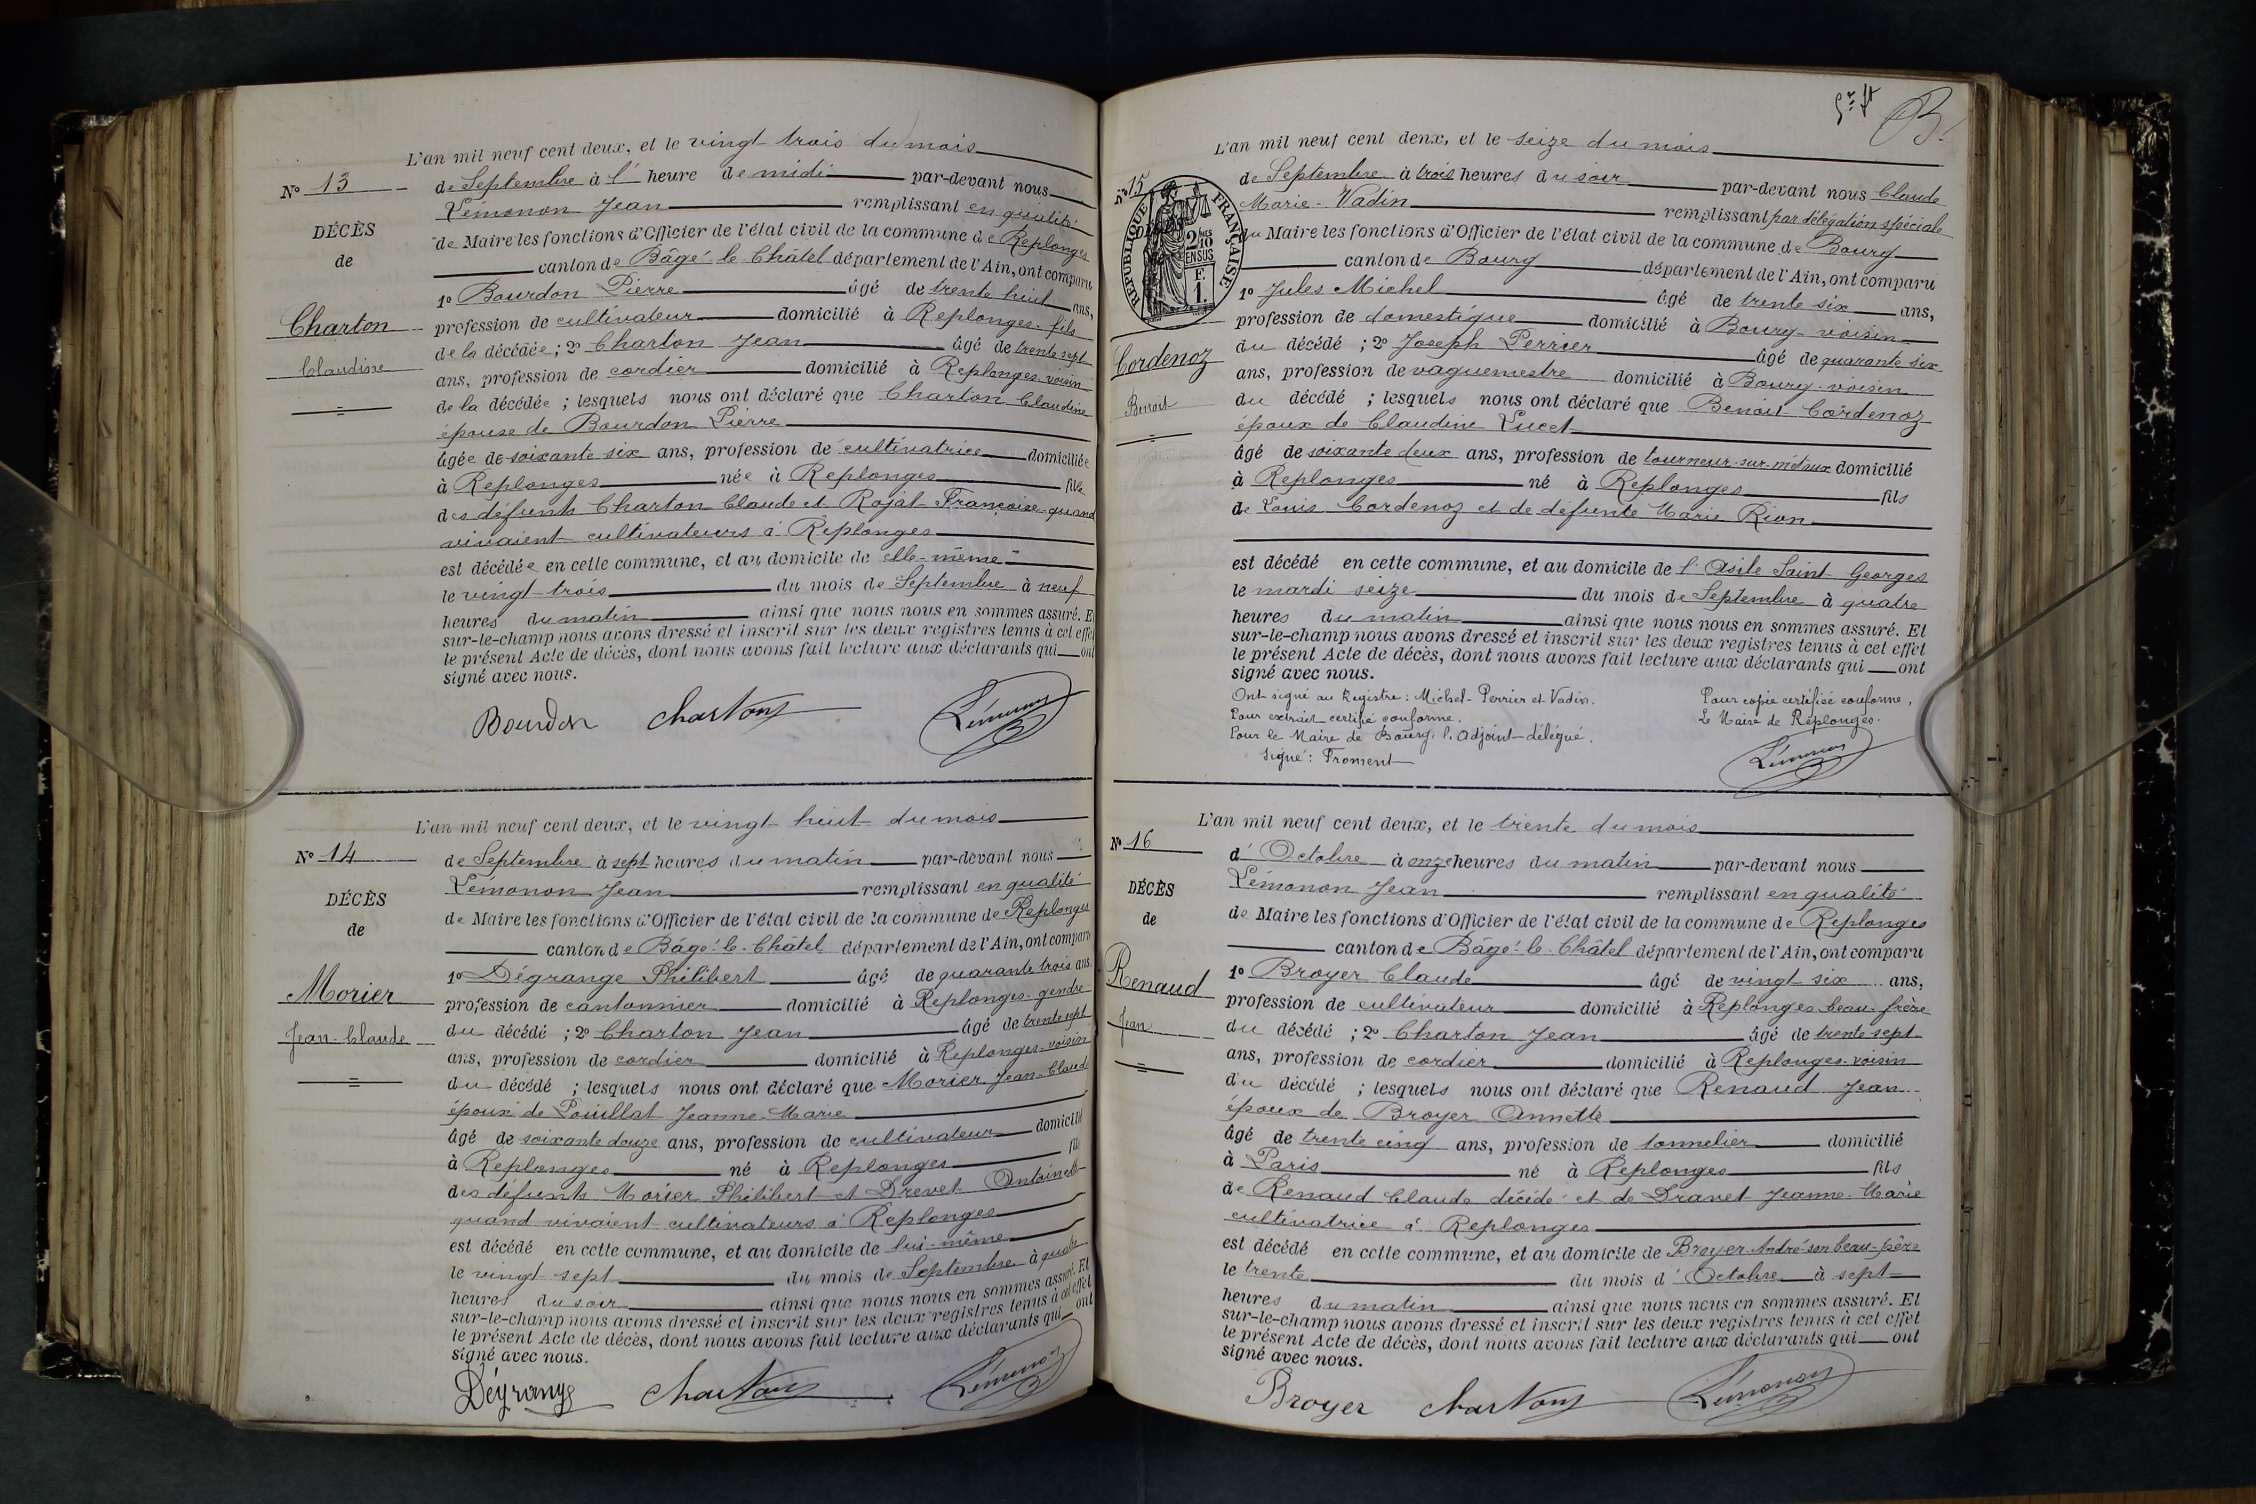 L'an mil neuf cent deux, et le vingt trois du mois
N° 13
de Septembre à l' heure de midi par-devant nous
Lémonon Jean remplissant en qualité
DÉCÈS
de Maire les fonctions d'Officier de l'état civil de la commune de Replonges
de
canton de Bâgé-le-Châtel département de l'Ain, ont comparu
1° Bourdon Pierre âgé de trente huit ans,
Charton
profession de cultivateur domicilié à Replonges - fils
de la décédée ; 2° Charton Jean âgé de trente sept
Claudine
ans, profession de cordier domicilié à Replonges - voisin
de la décédée ; lesquels nous ont déclaré que Charton Claudine
épouse de Bourdon Pierre
âgée de soixante six ans, profession de cultivatrice domiciliée
à Replonges née à Replonges fille
des défunts Charton Claude et Rojat Françoise quand
vivaient cultivateurs à Replonges
est décédée en cette commune, et au domicile de elle-même
le vingt-trois du mois de Septembre à neuf
heures du matin ainsi que nous nous en sommes assuré. Et
sur-le-champ nous avons dressé et inscrit sur les deux registres tenus à cet effet
le présent Acte de décès, dont nous avons fait lecture aux déclarants qui ont
signé avec nous.
Bourdon Charton Lémonon
L'an mil neuf cent deux, et le vingt huit du mois
N° 14
de Septembre à sept heures du matin par-devant nous
Lémonon Jean remplissant en qualité
DÉCÈS
de Maire les fonctions d'Officier de l'état civil de la commune de Replonges
de
canton de Bâgé-le-Châtel département de l'Ain, ont comparu
1° Dégrange Philibert âgé de quarante trois ans
Morier
profession de cantonnier domicilié à Replonges - gendre
du décédé ; 2° Charton Jean âgé de trente sept
Jean-Claude
ans, profession de cordier domicilié à Replonges - voisin
du décédé ; lesquels nous ont déclaré que Morier Jean-Claude
époux de Pouillat Jeanne-Marie
âgé de soixante douze ans, profession de cultivateur domicilié
à Replonges né à Replonges fils
des défunts Morier Philibert et Drevet Antoinette
quand vivaient cultivateurs à Replonges
est décédé en cette commune, et au domicile de lui-même
le vingt sept du mois de Septembre à quatre
heures du soir ainsi que nous nous en sommes assuré. Et
sur-le-champ nous avons dressé et inscrit sur les deux registres tenus à cet effet
le présent Acte de décès, dont nous avons fait lecture aux déclarants qui ont
signé avec nous.
Dégrange Charton Lémonon
L'an mil neuf cent deux, et le seize du mois
N° 15
de Septembre à trois heures du soir par-devant nous Claude
Marie-Vadin remplissant par délégation spéciale
du Maire les fonctions d'Officier de l'état civil de la commune de Bourg
RÉPUBLIQUE FRANÇAISE
2/10 EN SUS
F. 1.
canton de Bourg département de l'Ain, ont comparu
1° Jules Michel âgé de trente six ans,
profession de domestique domicilié à Bourg - voisin
Cordenoz
du décédé ; 2° Joseph Perrier âgé de quarante six
ans, profession de vaguemestre domicilié à Bourg - voisin
Benoit
du décédé ; lesquels nous ont déclaré que Benoit Cordenoz
époux de Claudine Lucet
âgé de soixante deux ans, profession de tourneur-sur-métaux domicilié
à Replonges né à Replonges fils
de Louis Cordenoz et de défunte Marie Rion
est décédé en cette commune, et au domicile de l'Asile Saint Georges
le mardi seize du mois de Septembre à quatre
heures du matin ainsi que nous nous en sommes assuré. Et
sur-le-champ nous avons dressé et inscrit sur les deux registres tenus à cet effet
le présent Acte de décès, dont nous avons fait lecture aux déclarants qui ont
signé avec nous.
Ont signé au Registre : Michel - Perrier et Vadin.
Pour extrait certifié conforme.
Pour le Maire de Bourg, l'adjoint-délégué.
Signé : Froment
Pour copie certifiée conforme,
Le Maire de Replonges.
Lémonon
L'an mil neuf cent deux, et le trente du mois
N° 16
d'Octobre à onze heures du matin par-devant nous
Lémonon Jean remplissant en qualité
DÉCÈS
de Maire les fonctions d'Officier de l'état civil de la commune de Replonges
de
canton de Bâgé-le-Châtel département de l'Ain, ont comparu
Renaud
1° Broyer Claude âgé de vingt six ans,
profession de cultivateur domicilié à Replonges beau-frère
Jean
du décédé ; 2° Charton Jean âgé de trente sept
ans, profession de cordier domicilié à Replonges - voisin
du décédé ; lesquels nous ont déclaré que Renaud Jean
époux de Broyer Annette
âgé de trente cinq ans, profession de tonnelier domicilié
à Paris né à Replonges fils
de Renaud Claude décédé et de Dravet Jeanne-Marie
cultivatrice à Replonges
est décédé en cette commune, et au domicile de Broyer André son beau-père
le trente du mois d'Octobre à sept
heures du matin ainsi que nous nous en sommes assuré. Et
sur-le-champ nous avons dressé et inscrit sur les deux registres tenus à cet effet
le présent Acte de décès, dont nous avons fait lecture aux déclarants qui ont
signé avec nous.
Broyer Charton Lémonon